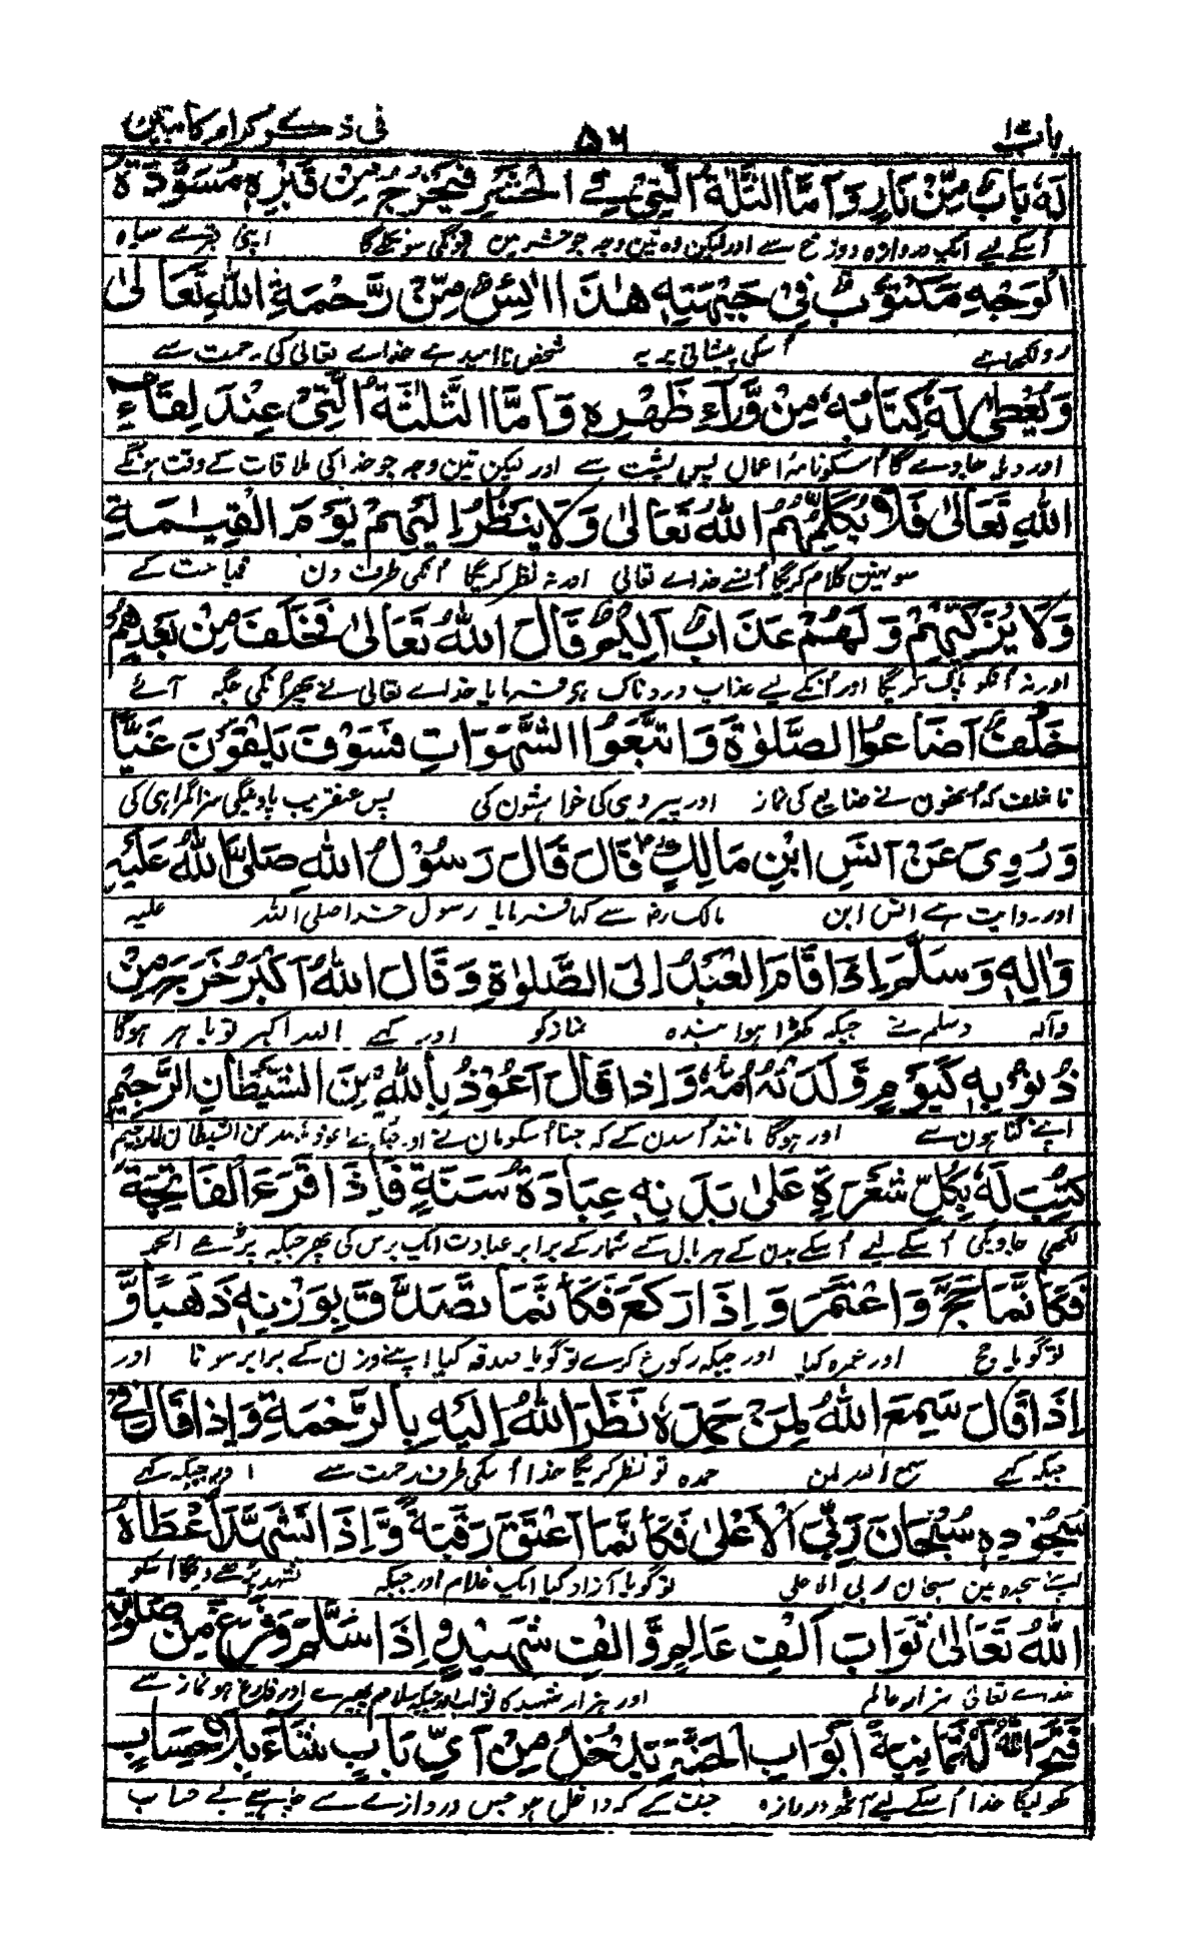 باب ١٣ ٥٦ فی ذکر کراما کاتبین
لَهٗ بَابٌ مِّنْ نَارٍ وَاَمَّا الثَّلٰثَةُ الَّتِیْ فِی الْحَشْرِ فَیَخْرُجُ مِنْ قَبْرِهٖ مُسَوَّدَةُ
اُسکے لیے ایک دروازہ دوزخ سے اور لیکن وہ تین وجہ جو حشر مین ہونگی سو نکلے گا اپنی قبر سے سیاہ
الْوَجْهِ مَکْتُوْبٌ فِیْ جَبْهَتِهٖ هٰذَا اٰیِسٌ مِّنْ رَّحْمَةِ اللّٰهِ تَعَالٰی
رو لکھا ہے اُسکی پیشانی پہ یہ شخص نا امید ہے خداے تعالی کی رحمت سے
وَیُعْطٰی لَهٗ کِتَابُهٗ مِنْ وَّرَآءِ ظَهْرِهٖ وَاَمَّا الثَّلٰثَةُ الَّتِیْ عِنْدَ لِقَآءِ
اور دیا جاوے گا اُسکو نامۂ اعمال پس پشت سے اور لیکن تین وجہ جو خدا کی ملاقات کے وقت ہونگے
اللّٰهِ تَعَالٰی فَلَا یُکَلِّمُهُمُ اللّٰهُ تَعَالٰی وَلَا یَنْظُرُ اِلَیْهِمْ یَوْمَ الْقِیٰمَةِ
سو نہین کلام کریگا اُنسے خداے تعالی اور نہ نظر کریگا اُنکی طرف دن قیامت کے
وَلَا یُزَکِّیْهِمْ وَلَهُمْ عَذَابٌ اَلِیْمٌ قَالَ اللّٰهُ تَعَالٰی فَخَلَفَ مِنْ بَعْدِهِمْ
اور نہ اُنکو پاک کریگا اور اُنکے لیے عذاب دردناک ہو فرمایا خداے تعالی نے پھر اُنکی جگہ آئے
خَلْفٌ اَضَاعُوا الصَّلٰوةَ وَاتَّبَعُوا الشَّهَوَاتِ فَسَوْفَ یَلْقَوْنَ غَیًّا
نا خلف کہ اُنھون نے ضایع کی نماز اور پیروی کی خواہشون کی پس عنقریب پاوینگی سزا گمراہی کی
وَرُوِیَ عَنْ اَنَسِ ابْنِ مَالِکٍ رض قَالَ قَالَ رَسُوْلُ اللّٰهِ صَلَّی اللّٰهُ عَلَیْهِ
اور روایت ہے انس ابن مالک رض سے کہا فرمایا رسول خدا صلی اللہ علیہ
وَاٰلِهٖ وَسَلَّمَ اِذَا قَامَ الْعَبْدُ اِلَی الصَّلٰوةِ وَقَالَ اللّٰهُ اَکْبَرُ خَرَجَ مِنْ
وآلہ وسلم نے جبکہ کھڑا ہوا بندہ نماز کو اور کہے اللہ اکبر تو باہر ہوگا
ذُنُوْبِهٖ کَیَوْمٍ وَّلَدَتْهُ اُمُّهٗ وَاِذَا قَالَ اَعُوْذُ بِاللّٰهِ مِنَ الشَّیْطَانِ الرَّجِیْمِ
اپنے گناہون سے اور ہوگا مانند اُسدن کے کہ جنا اُسکو مان نے اور جبکہ کہے اعوذ باللہ من الشیطان الرجیم
کُتِبَ لَهٗ بِکُلِّ شَعْرَةٍ عَلٰی بَدَنِهٖ عِبَادَةُ سَنَةٍ فَاِذَا قَرَءَ الْفَاتِحَةَ
لکھی جاویگی اُسکے لیے اُسکے بدن کے ہر بال کے شمار کے برابر عبادت ایک برس کی پھر جبکہ پڑھے الحمد
فَکَاَنَّمَا حَجَّ وَاعْتَمَرَ وَاِذَا رَکَعَ فَکَاَنَّمَا تَصَدَّقَ بِوَزْنِهٖ ذَهَبًا وَّ
تو گویا حج اور عمرہ کیا اور جبکہ رکوع کرے تو گویا صدقہ کیا اپنے وزن کے برابر سونا اور
اِذَا قَالَ سَمِعَ اللّٰهُ لِمَنْ حَمِدَهٗ نَظَرَ اللّٰهُ اِلَیْهِ بِالرَّحْمَةِ وَاِذَا قَالَ فِیْ
جبکہ کہے سمع اللہ لمن حمدہ تو نظر کریگا خدا اُسکی طرف رحمت سے اور جبکہ کہے
سُجُوْدِهٖ سُبْحَانَ رَبِّیَ الْاَعْلٰی فَکَاَنَّمَا اَعْتَقَ رَقَبَةً وَّاِذَا تَشَهَّدَ اَعْطَاهُ
اپنے سجدہ مین سبحان ربی الاعلی تو گویا آزاد کیا ایک غلام اور جبکہ تشہد پڑھے دیگا اُسکو
اللّٰهُ تَعَالٰی ثَوَابَ اَلْفِ عَالِمٍ وَّاَلْفِ شَهِیْدٍ وَ اِذَا سَلَّمَ وَفَرَغَ مِنْ صَلٰوتِهٖ
خداے تعالی ہزار عالم اور ہزار شہید کا ثواب اور جبکہ سلام پھیرے اور فارغ ہو نماز سے
فَتَحَ اللّٰهُ لَهٗ ثَمَانِیَةَ اَبْوَابِ الْجَنَّةِ یَدْخُلُ مِنْ اَیِّ بَابٍ شَآءَ بِلَا حِسَابٍ
کھولیگا خدا اُسکے لیے آٹھ دروازہ جنت کے کہ داخل ہو جس دروازے سے چاہے بے حساب